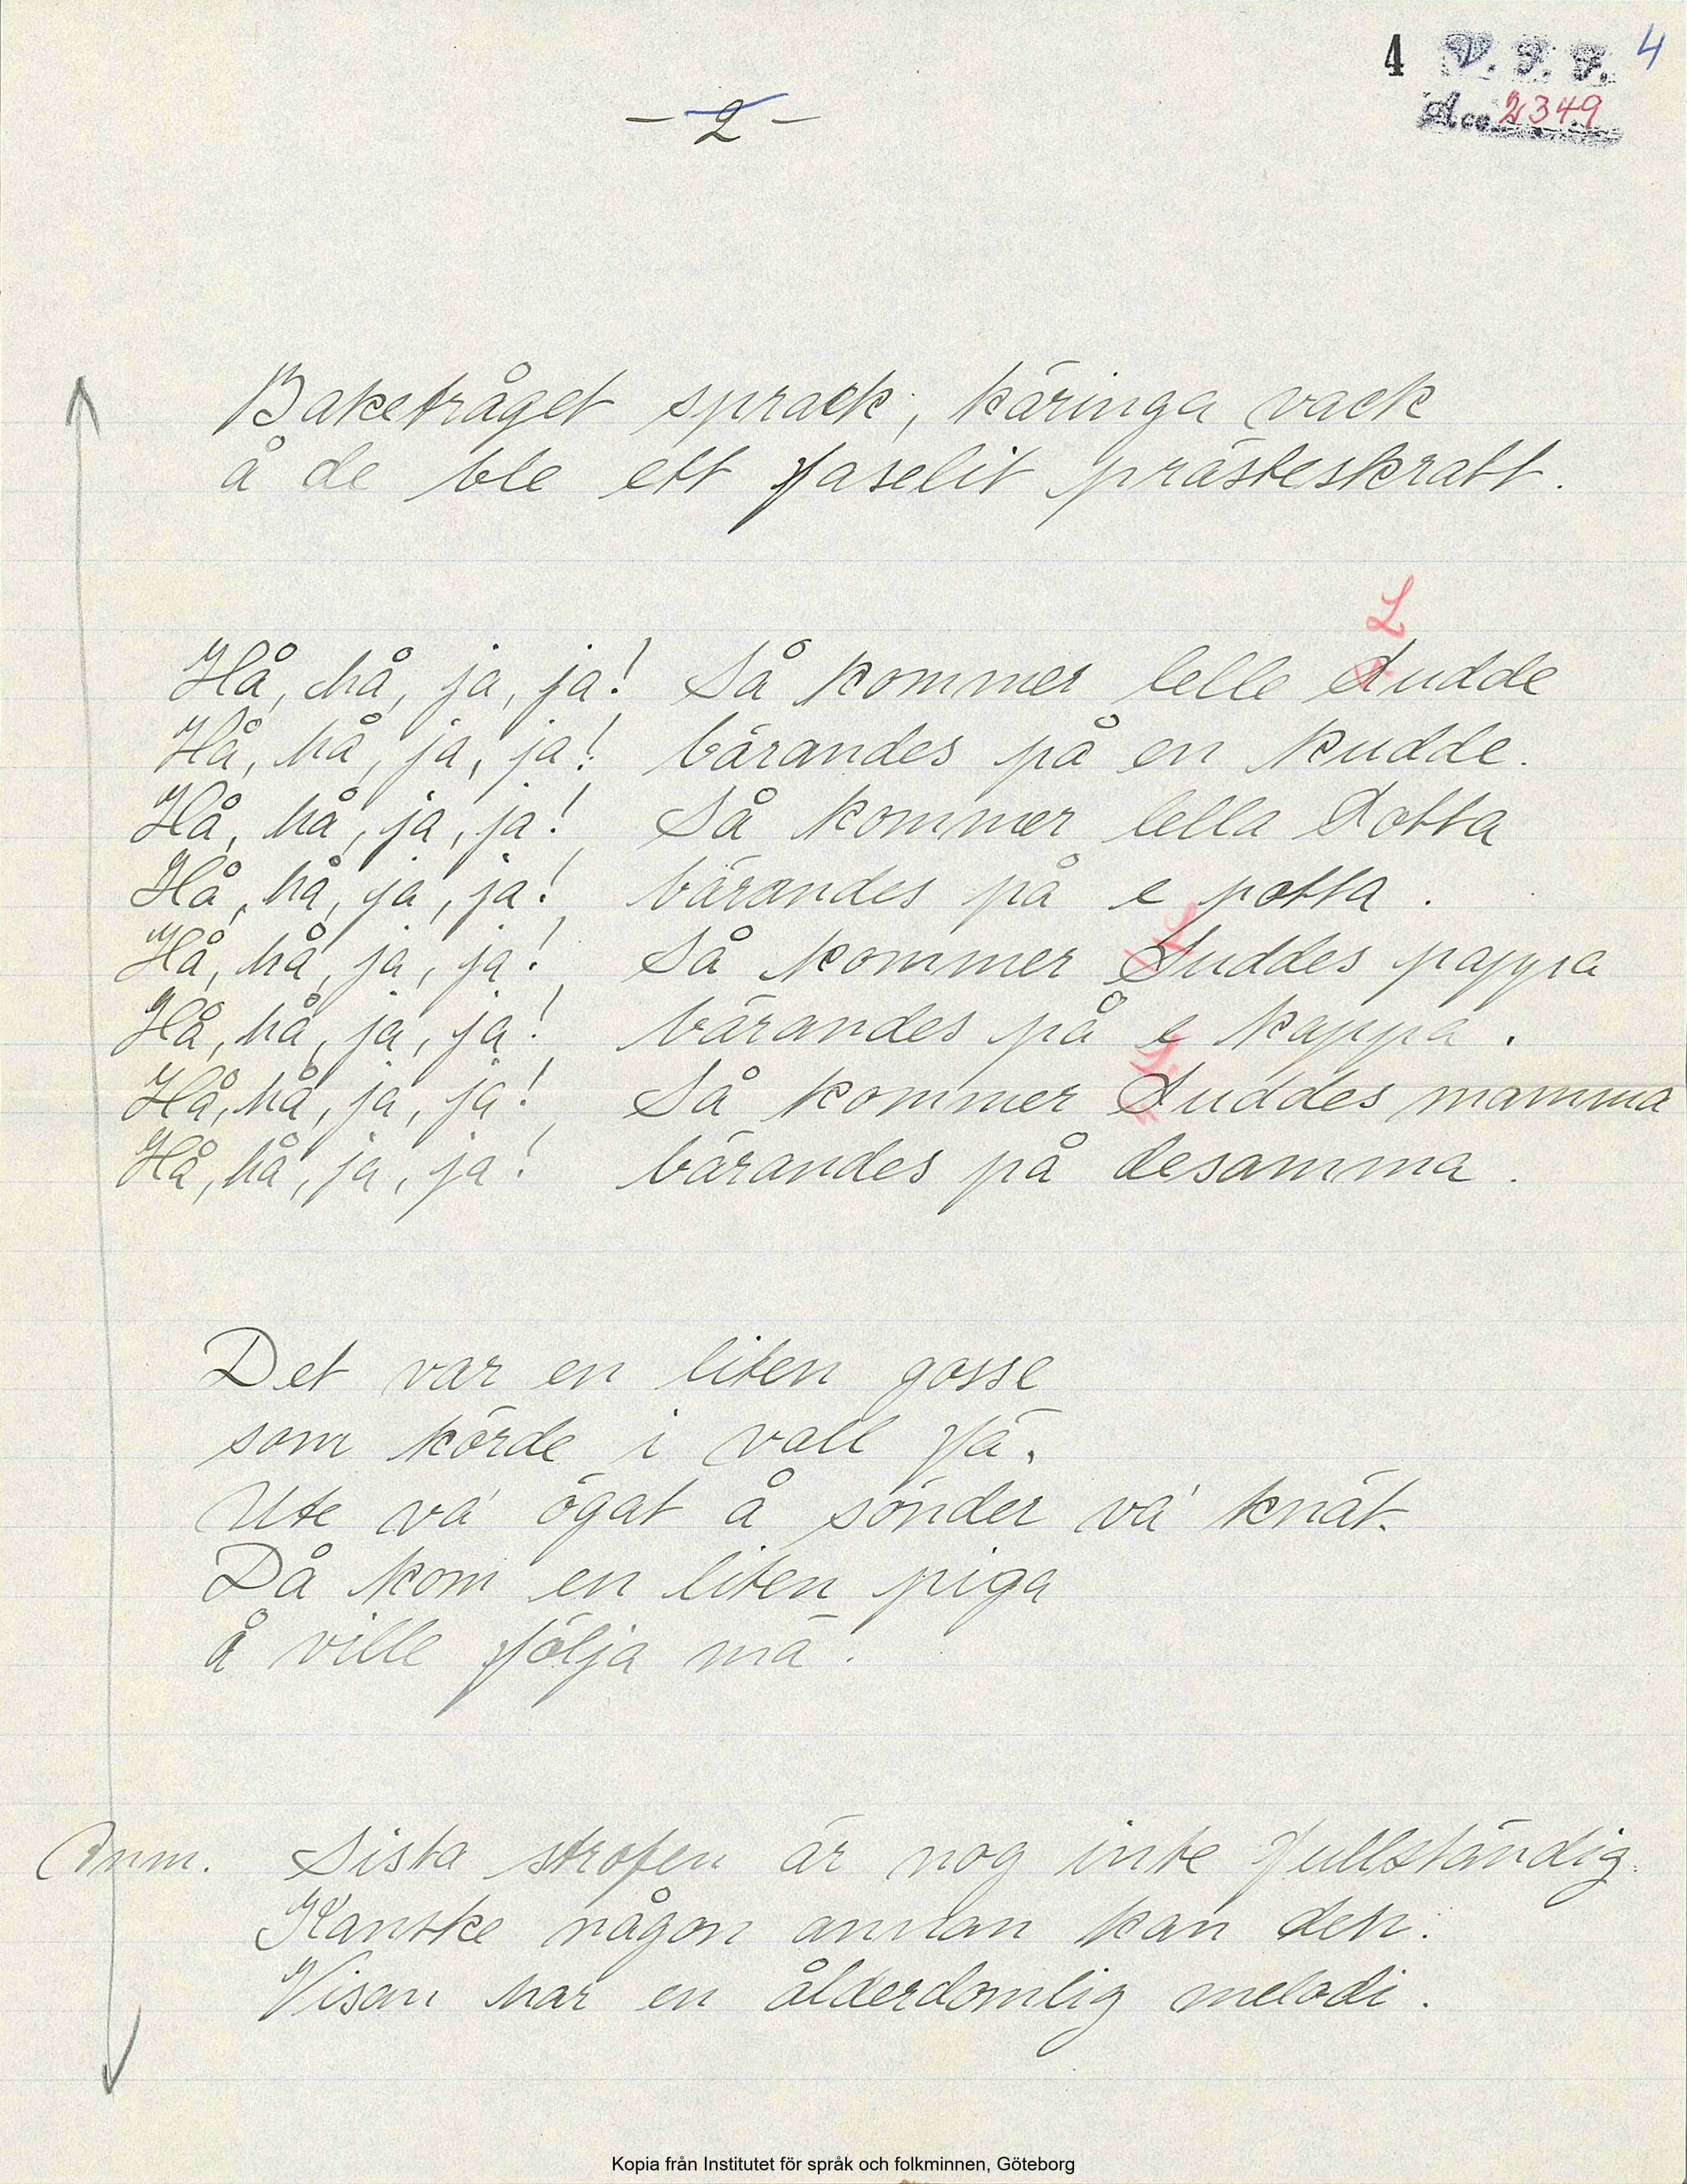 4 V. F. F. 4
Acc. 2349
- 2 -
Baketråget sprack, käringa vack
å de ble ett faselit prästeskratt.
L
Hå, hå, ja, ja! Så kommer lelle Ludde
Hå, hå, ja, ja! bärandes på en kudde.
Hå, hå, ja, ja! Så kommer lella Lotta
Hå, hå, ja, ja! bärandes på e potta.
Hå, hå, ja, ja! Så kommer Luddes pappa
Hå, hå, ja, ja! bärandes på e kappa.
Hå, hå, ja, ja! Så kommer Luddes mamma
Hå, hå, ja, ja! bärandes på desamma.
Det var en liten gosse
som körde i vall fä.
Ute va' ögat å sönder va' knät.
Då kom en liten piga
å ville följa mä.
Anm. Sista strofen är nog inte fullständig.
Kanske någon annan kan den.
Visan har en ålderdomlig melodi.
Kopia från Institutet för språk och folkminnen, Göteborg